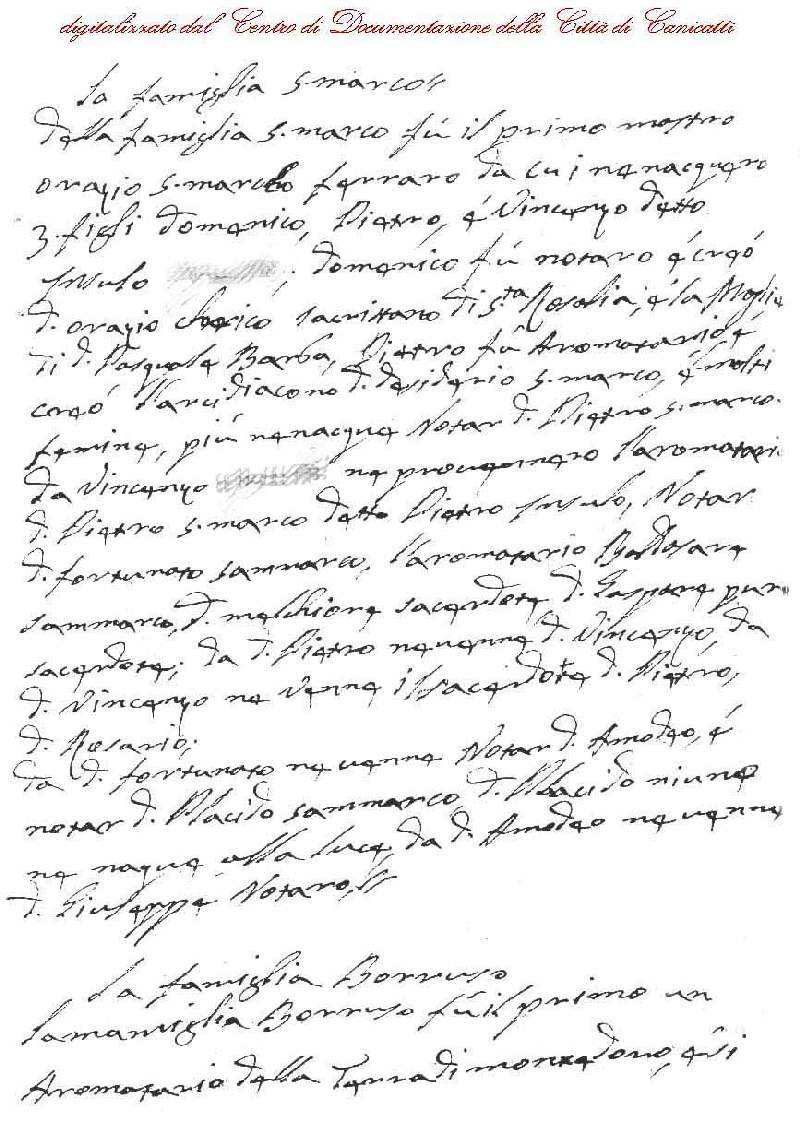 digitalizzato dal Centro di Documentazione della Città di Canicattì
La famiglia S. marco
della famiglia S. marco fù il primo mastro
orazio S. marco ferraro da cui nenacquero
3 figli domenico, Pietro, é Vincenzo detto
domenico fú notaro é creó
d. orazio cherico sacristano di S.ta Rosalia, é la Moglie
di d. Pasquale Barba, Pietro fù Aromatario é
creó l'arcidiacono d. desiderio S. marco, é molti
femine, più nenacque Notar d. Pietro S. marco.
da Vincenzo ne provennero l'aromatario
d. Pietro S. marco detto Pietro Notar
d. fortunato sammarco, l'aromatario Baldassare
sammarco, d. melchiore sacerdote d. Gaspare pure
sacerdote; da d. Pietro nevenne d. Vincenzo, da
d. Vincenzo ne venne il sacerdote d. Pietro,
d. Rosario;
da d. fortunato nevenne Notar d. Amodeo, é
notar d. Placido sammarco d. Placido niuno
ne naque alla luce, da d. Amodeo nevenne
d. Giuseppe Notaro
La famiglia Borruso
lamamiglia Borruso fú il primo un
Aromatario della Terra di montedoro, é si